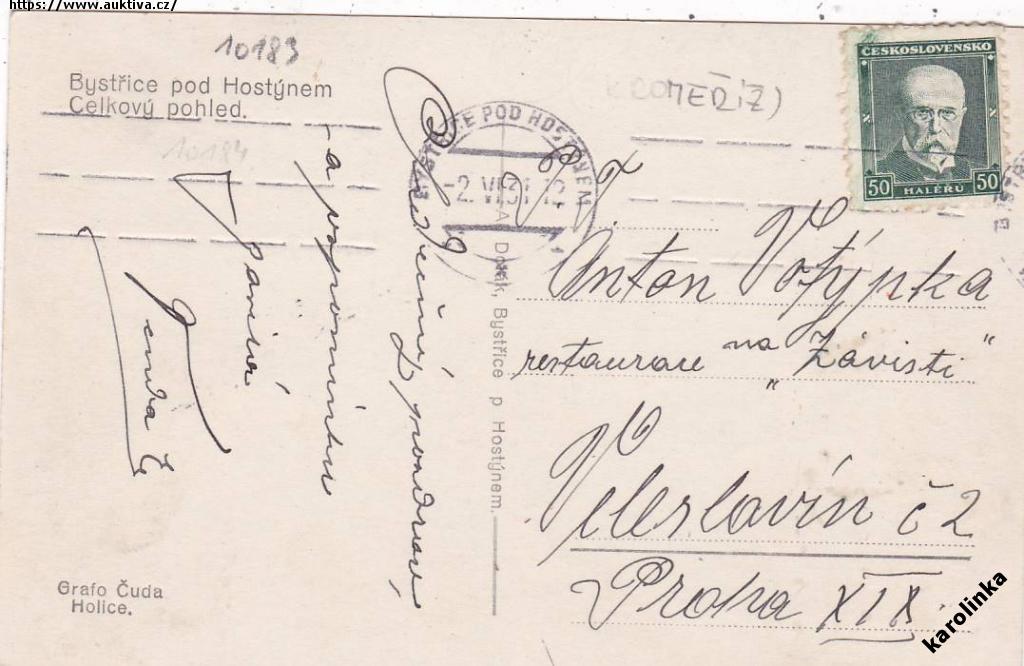 https://www.auktiva.cz/
10183
Bystřice pod Hostýnem
Celkový pohled.
10184
KROMĚŘÍŽ)
ČESKOSLOVENSKO
50 HALÉŘŮ 50
BYSTŘICE POD HOSTÝNEM
-2. VI 31 12
Srdečný pozdrav,
a vzpomínku
Bystřice p Hostýnem.
Anton Votýpka
restaurace na „Závisti“
Veleslavín č 2
Praha XIX.
Grafo Čuda
Holice.
karolinka